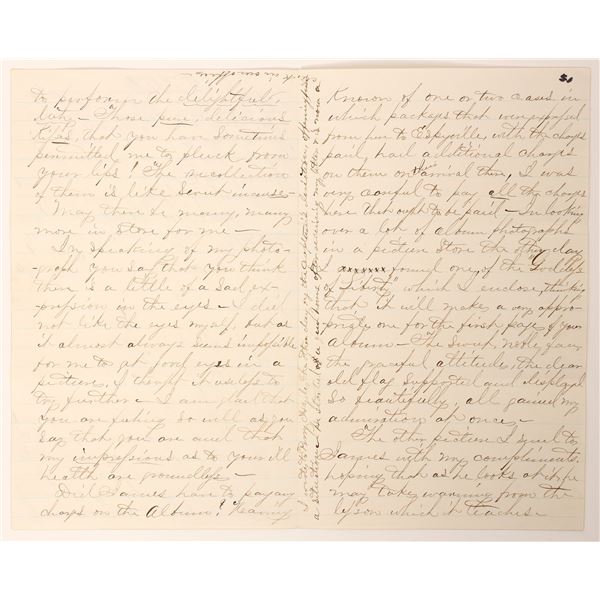 to perform the delightful
duty - Those pure, delicious
kisses, that you have sometimes
permitted me to pluck from
your lips! The recollection
of them is like sweet incense -
May there be many, many
more in store for me -
In speaking of my photo-
graph you say that you think
there is a little of a sad ex-
pression in the eyes - I did
not like the eyes myself, but as
it almost always seems impossible
for me to get good eyes in a
picture, I thought it useless to
try further - I am glad that
you are feeling so well as you
say that you are and that
my impressions as to your ill
health are groundless -
Did James have to pay any
charges on the Album? Having
known of one or two cases in
which packages that were prepaid
from here to Espyville, with the charges
paid, had additional charges
on them on their arrival there, I was
very careful to pay all the charges
here that ought to be paid - In looking
over a lot of album photographs
in a picture store the other day
I xxxxxxx found one, of the "Goddess
of Liberty" which I enclose, thinking
that it will make a very appro-
priate one for the first page of your
Album - The sweet, noble face,
the graceful attitude, the dear
old flag supported and displayed
so beautifully, all gained my
admiration at once -
The other picture I send to
James with my compliments,
hoping that as he looks at it he
may take warning from the
lesson which it teaches -
5.